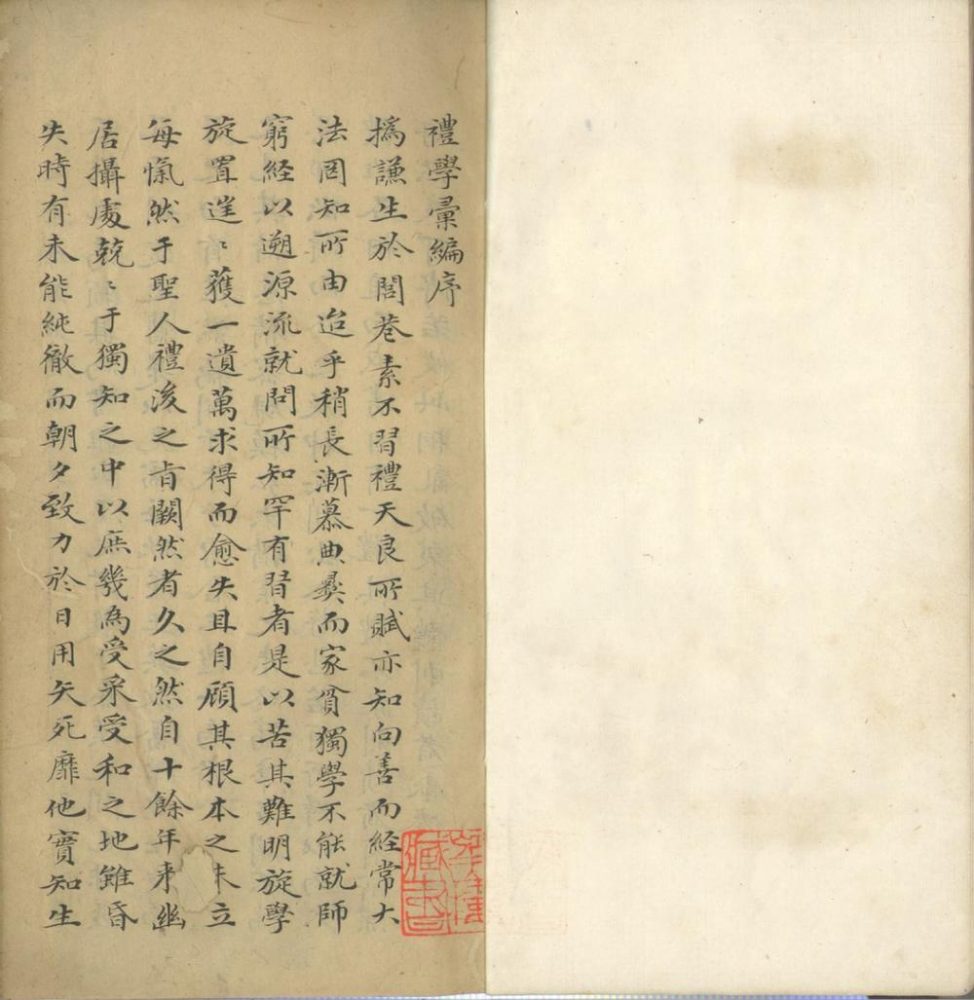 禮學彙編序
撝謙生於閭巷素不習禮天良所賦亦知向善而經常大
法罔知所由迨乎稍長漸慕典彝而家貧獨學不能就師
窮經以遡源流就問所知罕有習者是以苦其難明旋學
旋置遑〻獲一遺萬求得而愈失且自顧其根本之未立
每愾然于聖人禮後之旨闕然者久之然自十餘年來幽
居攝處兢〻于獨知之中以庶幾為受采受和之地雖昏
失時有未能純徹而朝夕致力於日用矢死靡他實知生
藏書